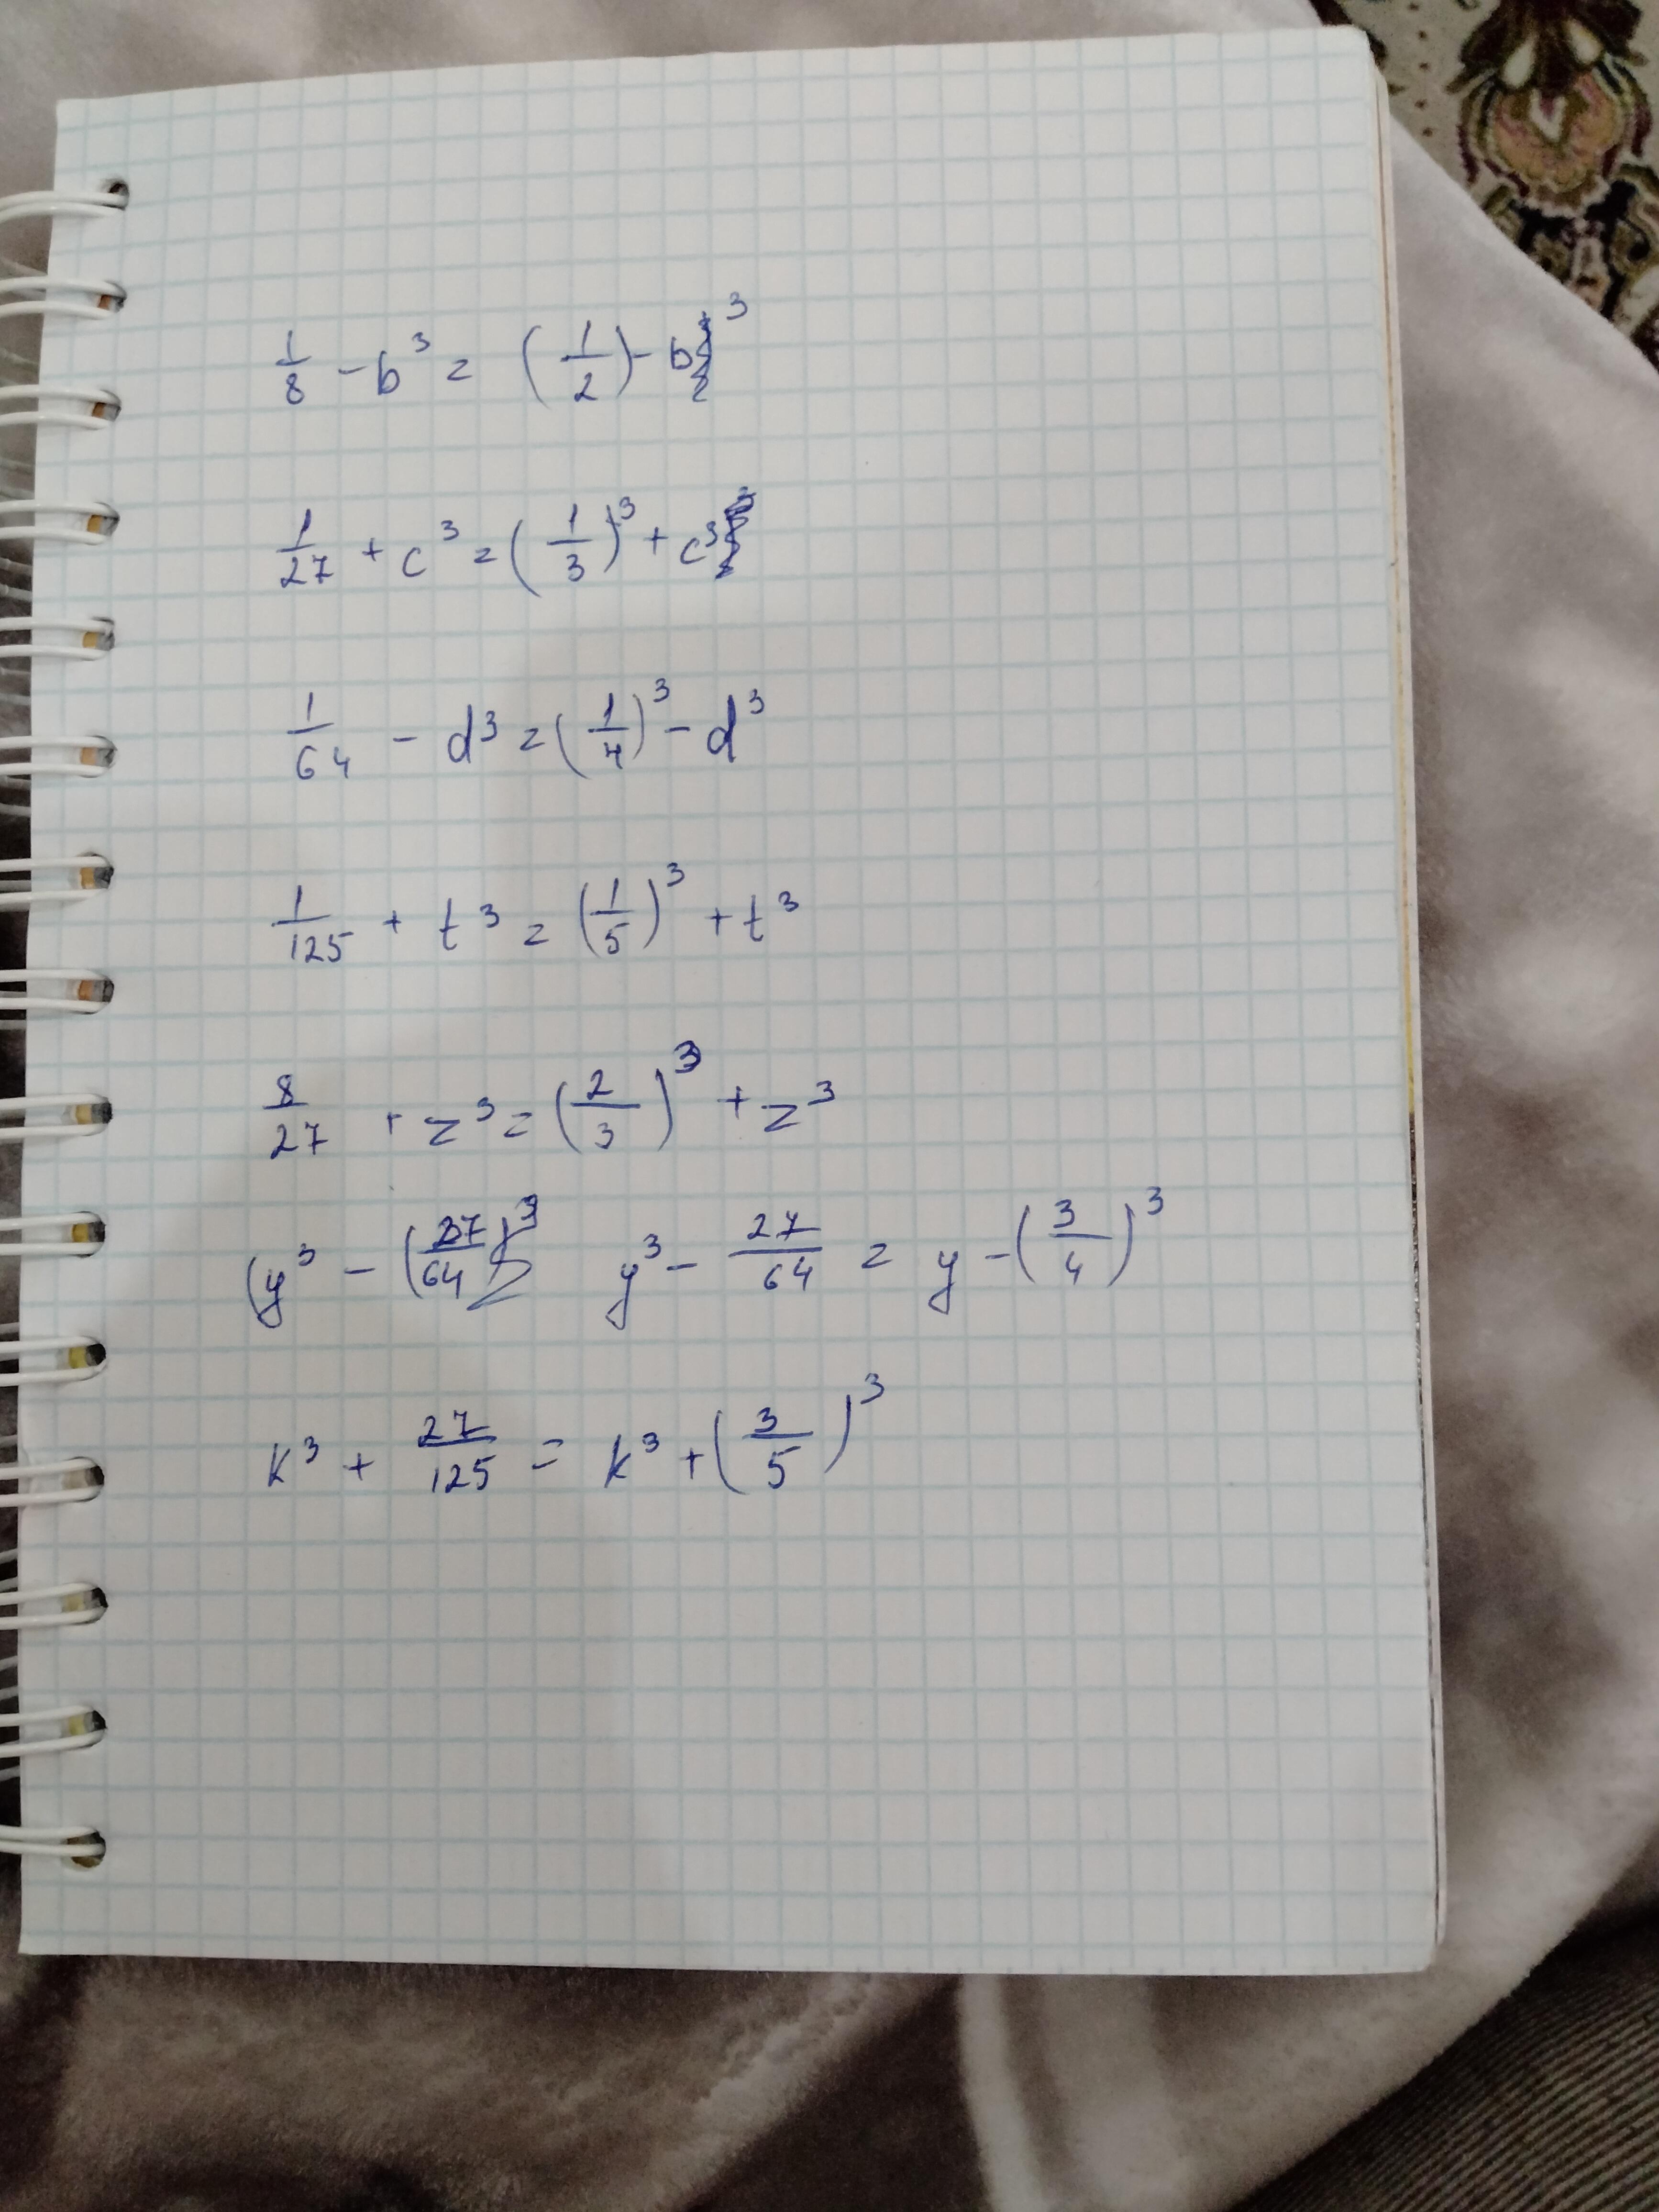 1/8 - b³ = (1/2) - b³
1/27 + c³ = (1/3)³ + c³
1/64 - d³ = (1/4)³ - d³
1/125 + t³ = (1/5)³ + t³
8/27 + z³ = (2/3)³ + z³
(y³ - (37/64)³ y³ - 27/64 = y - (3/4)³
k³ + 27/125 = k³ + (3/5)³